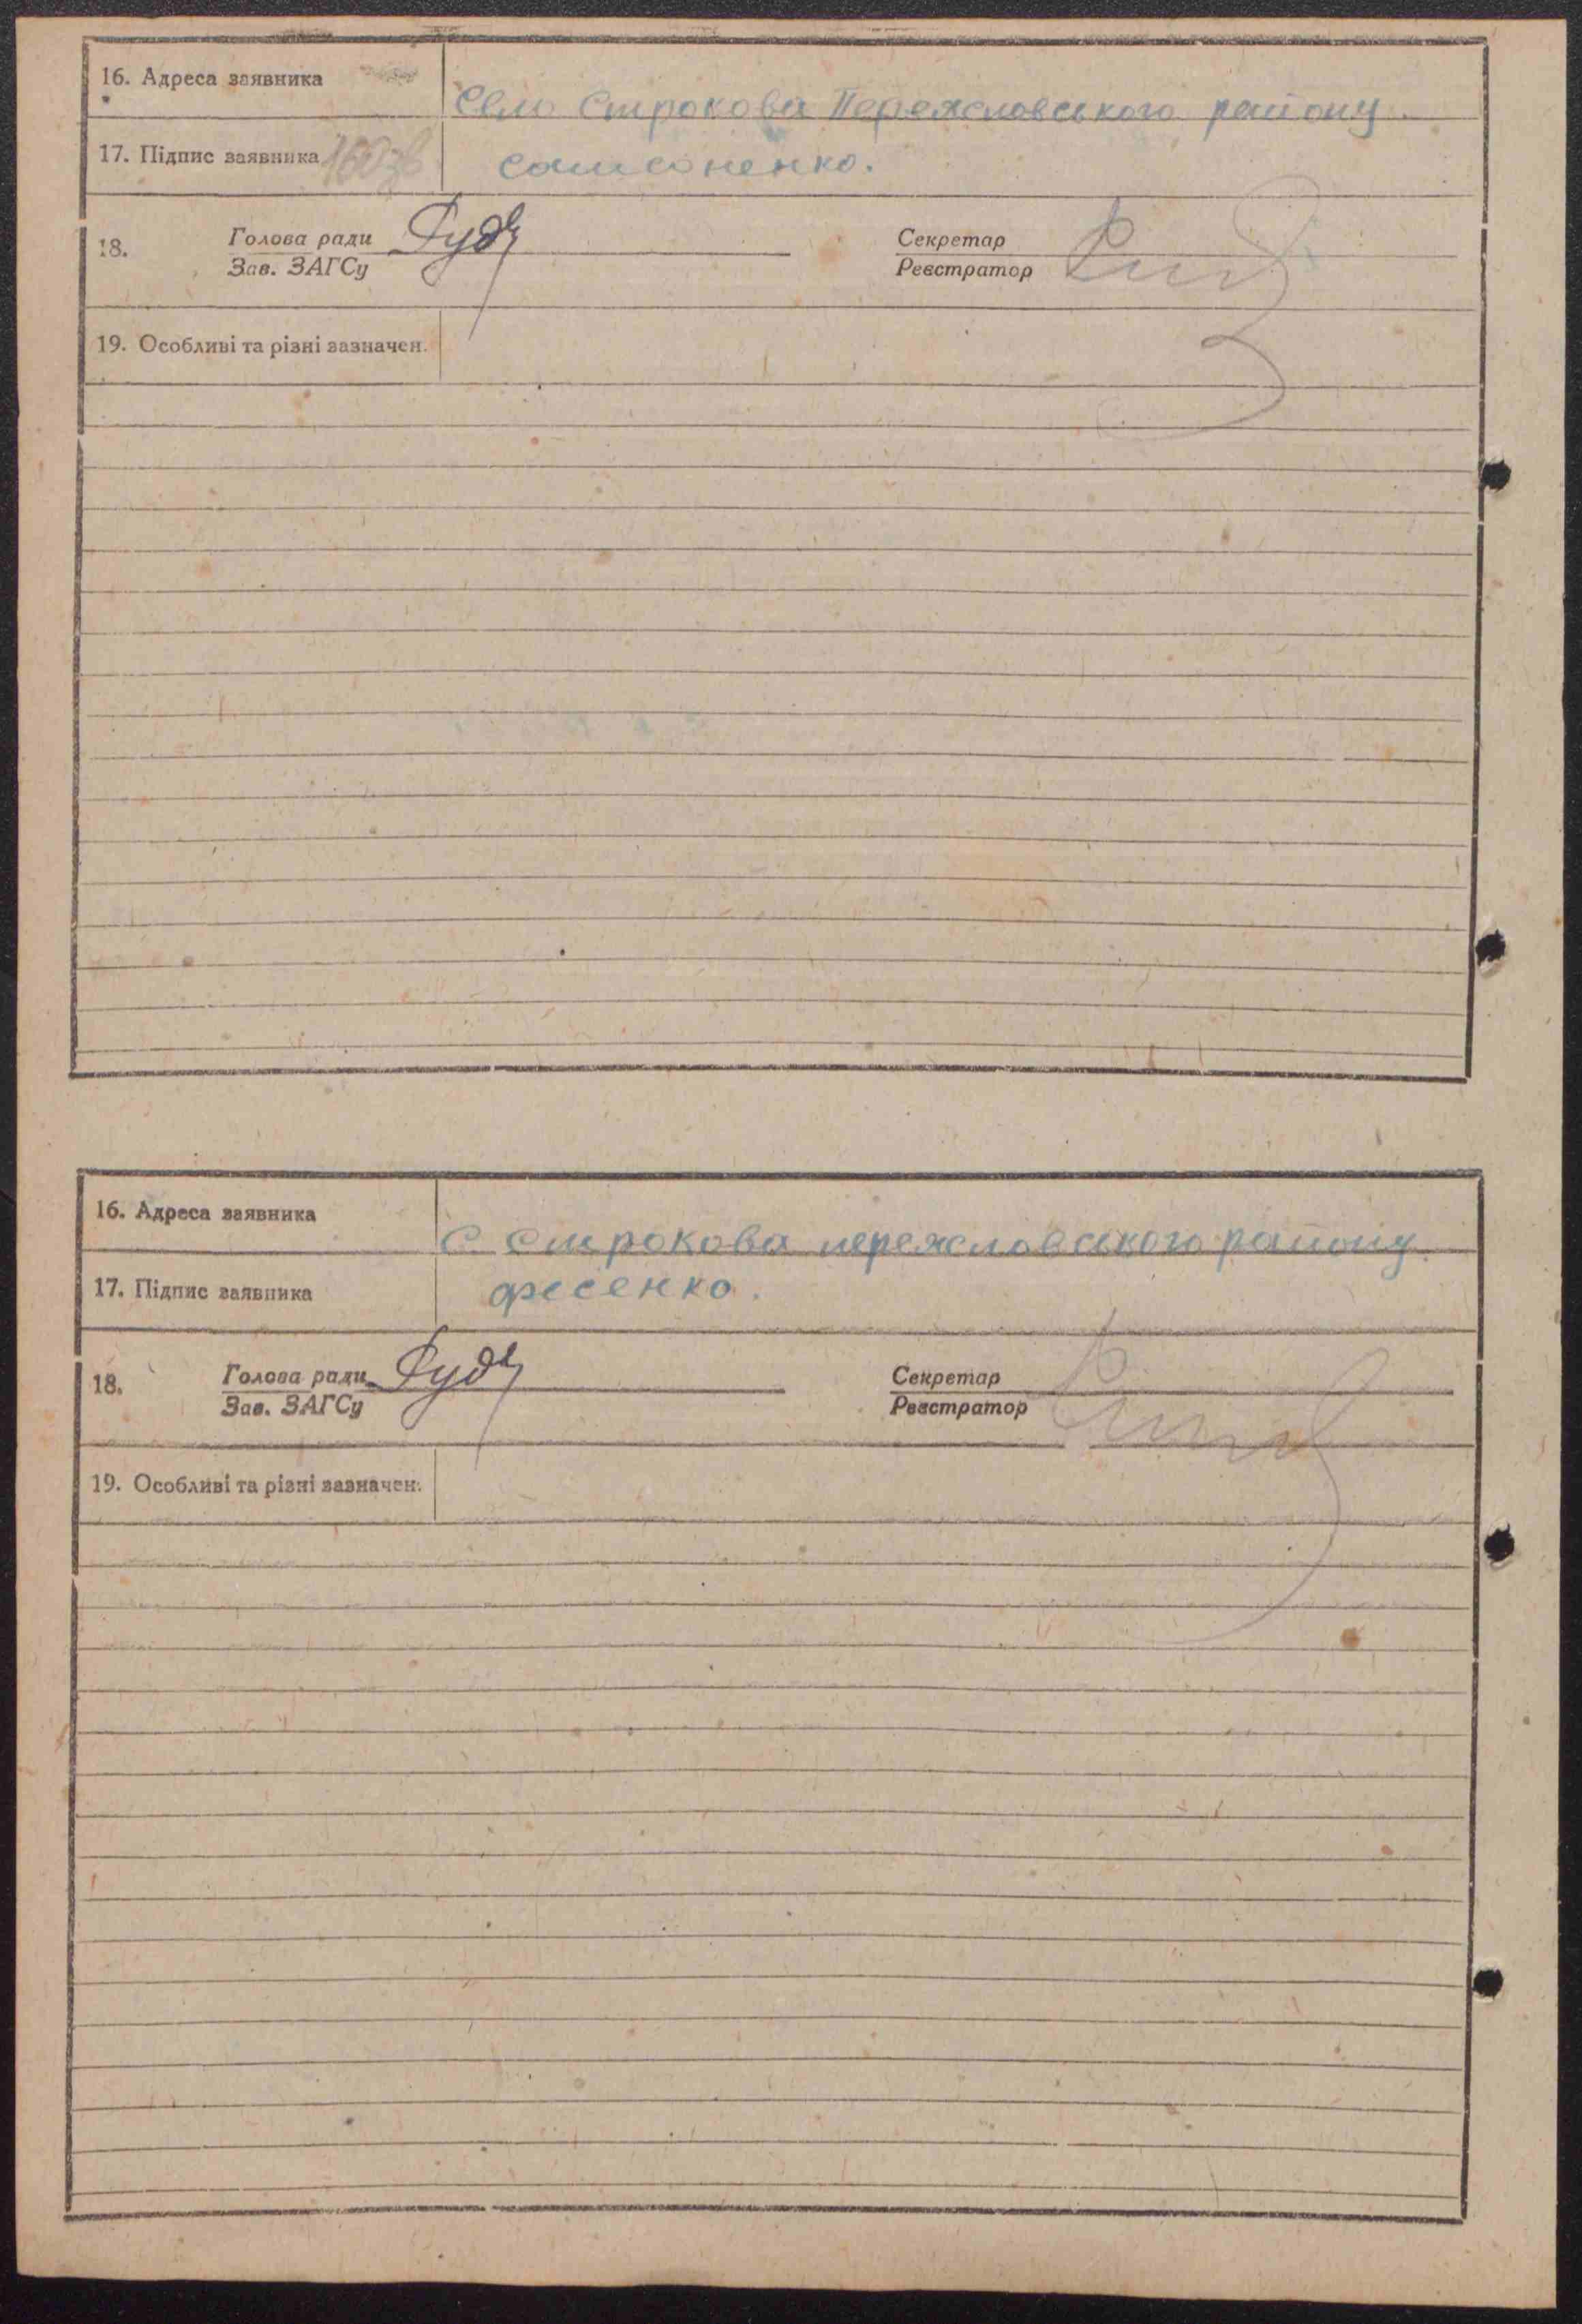 16. Адреса заявника
Село Строкова Переясловського району.
17. Підпис заявника 160зв
Самсоненко.
18. Голова ради
Зав. ЗАГСу
Секретар
Реєстратор
19. Особливі та різні зазначен.
16. Адреса заявника
С Строкова переясловського району.
17. Підпис заявника
фесенко.
18. Голова ради
Зав. ЗАГСу
Секретар
Реєстратор
19. Особливі та різні зазначен.